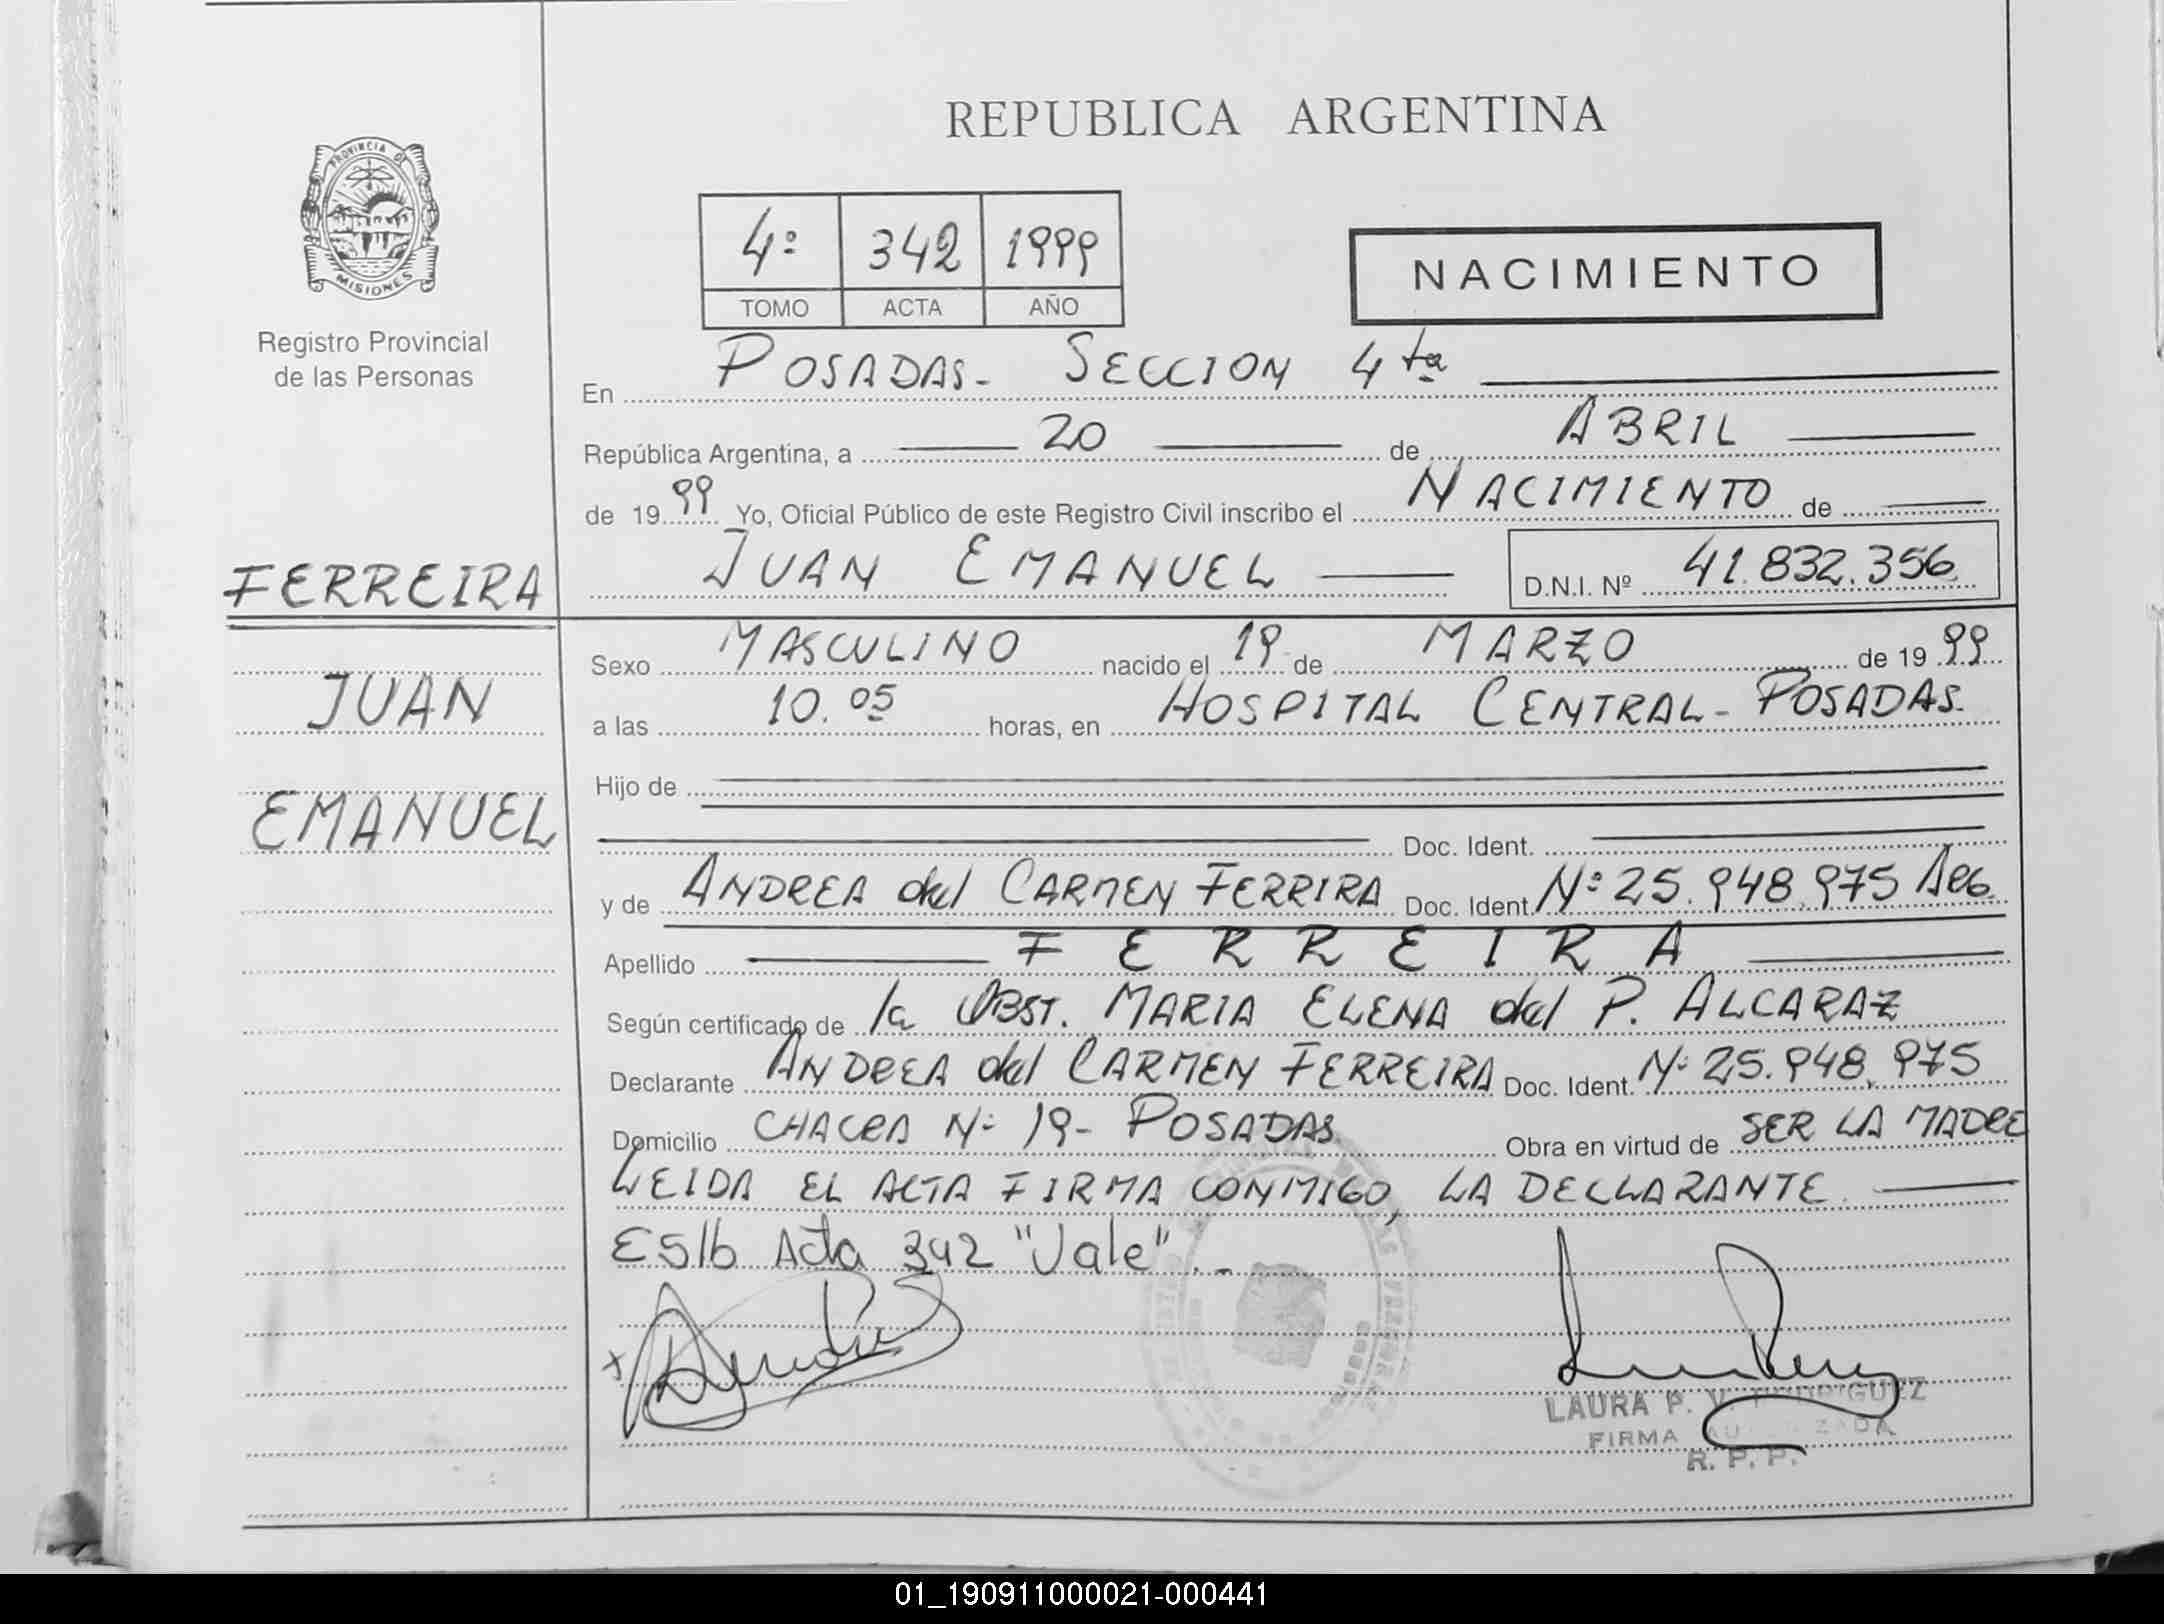 REPUBLICA ARGENTINA
PROVINCIA DE
MISIONES
Registro Provincial
de las Personas
4º 342 1999
TOMO ACTA AÑO
NACIMIENTO
En POSADAS- SECCION 4ta
República Argentina, a 20 de ABRIL
de 1999 Yo, Oficial Público de este Registro Civil inscribo el NACIMIENTO de
JUAN EMANUEL D.N.I. Nº 41.832.356
FERREIRA
JUAN
EMANUEL
Sexo MASCULINO nacido el 19 de MARZO de 1999
a las 10.05 horas, en HOSPITAL CENTRAL- POSADAS.
Hijo de
Doc. Ident.
y de ANDREA del CARMEN FERRIRA Doc. Ident. Nº 25.948.975 ARG.
Apellido FERREIRA
Según certificado de la OBST. MARIA ELENA del P. ALCARAZ
Declarante ANDREA del CARMEN FERREIRA Doc. Ident. Nº 25.948.975
Domicilio CHACRA Nº 19- POSADAS. Obra en virtud de SER LA MADRE
LEIDA EL ACTA FIRMA CONMIGO, LA DECLARANTE.
E5/b Acta 342 "Vale"..-
LAURA P. V. RODRIGUEZ
FIRMA AUTORIZADA
R. P. P.
01_190911000021-000441